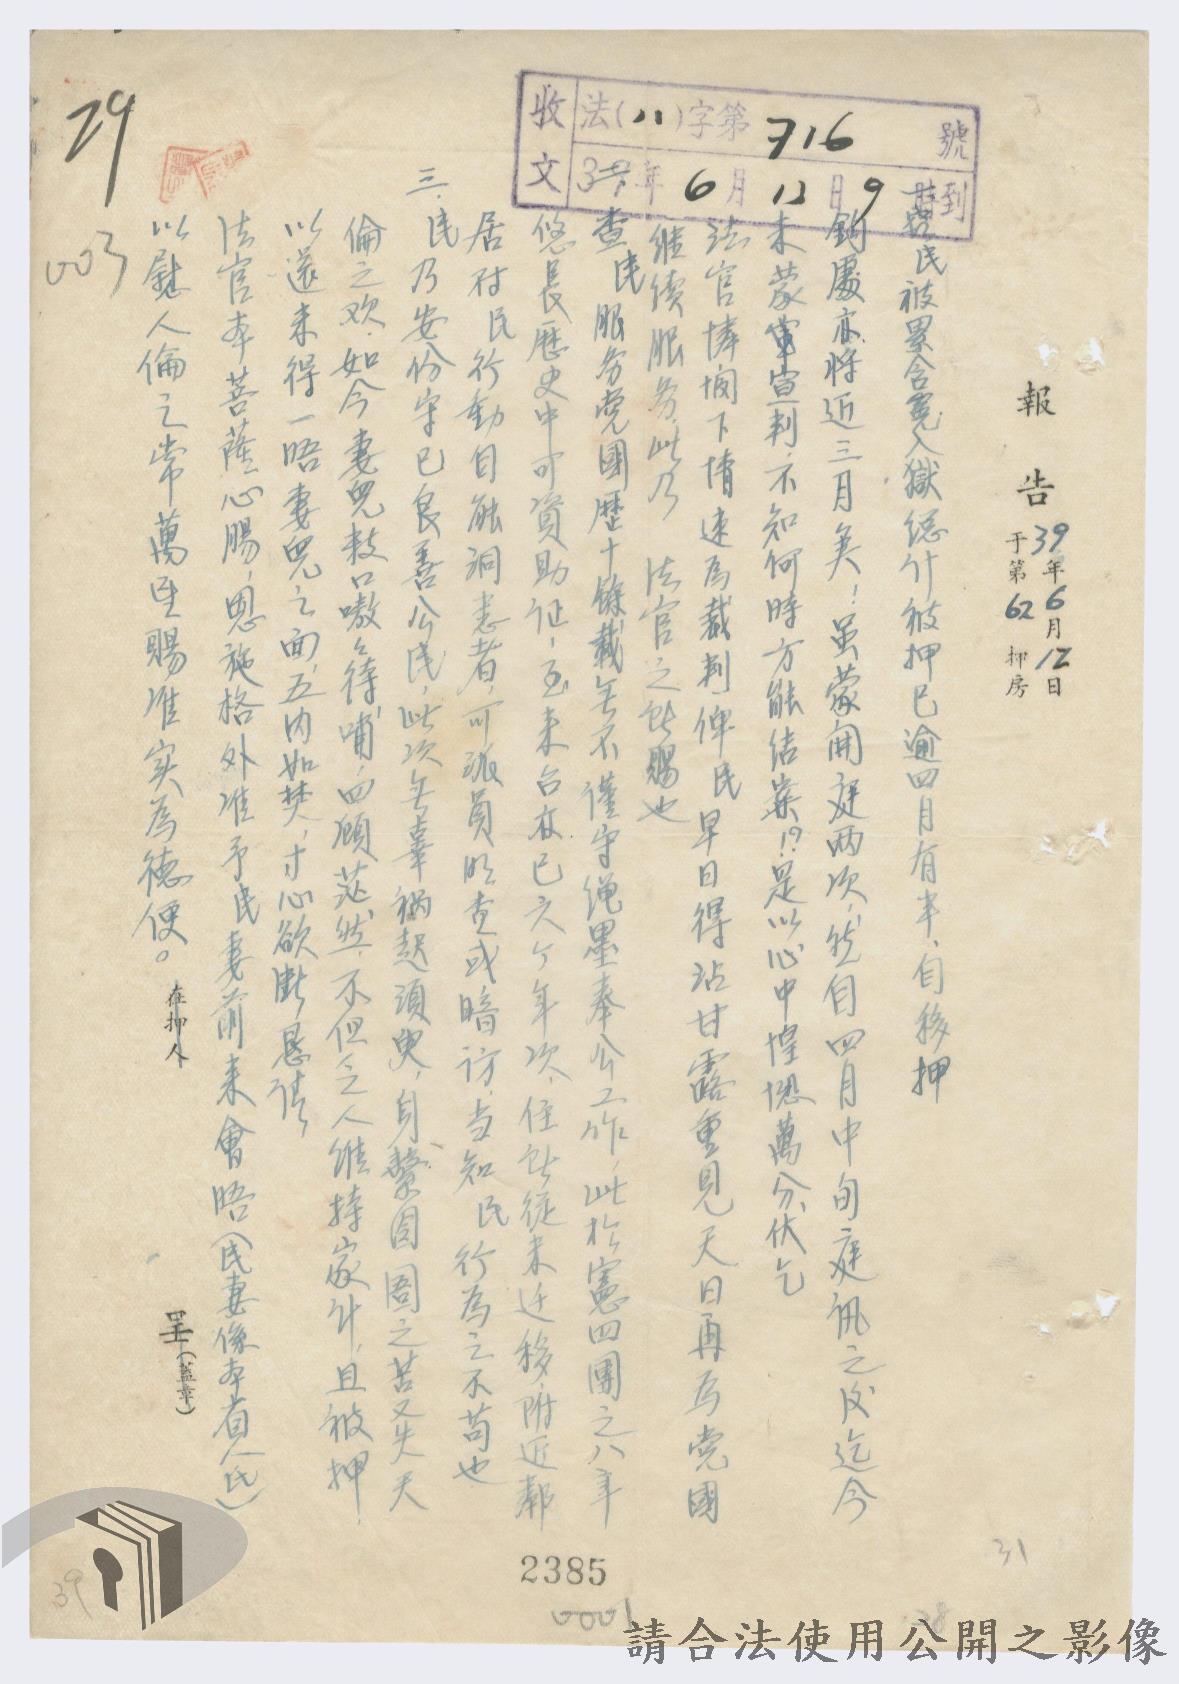 報告
39年6月12日
于第62押房
一、窃民被累含冤入獄總計被押已逾四月有半、自移押
鈞處亦將近三月矣!虽蒙開庭兩次、然自四月中旬庭訊之後迄今
未蒙宣判、不知何時方能結案!?是以心中惶恐萬分、伏乞
法官憐憫下情速為裁判俾民早日得沾甘露重見天日再為党國
継續服务、此乃 法官之所賜也
二、查民服务党團歷十餘載無不謹守绳墨奉公工作、此於憲四團之八年
悠長歷史中可資助证、至来台在已六个年次、住所從未迁移、附近鄰
居对民行動自能洞悉者、可派員明查或暗訪、当知民行為之不苟也
三、民乃安份守己良善公民、此次無辜禍起須臾、身繫囹圄之苦又失天
倫之欢、如今妻兒数口嗷々待哺、四顧茫然、不但乏人維持家计、且被押
以還未得一晤妻兒之面、五内如焚、寸心欲断、恳请
法官本菩薩心腸、恩施格外准予民妻前来會晤(民妻係本省人民)
以慰人倫之常萬望賜准实為德便。
在押人
呈(蓋章)
收文
法(八)字第716號
39年6月12日9時到
29
003
2385
0001
39
31
38
請合法使用公開之影像